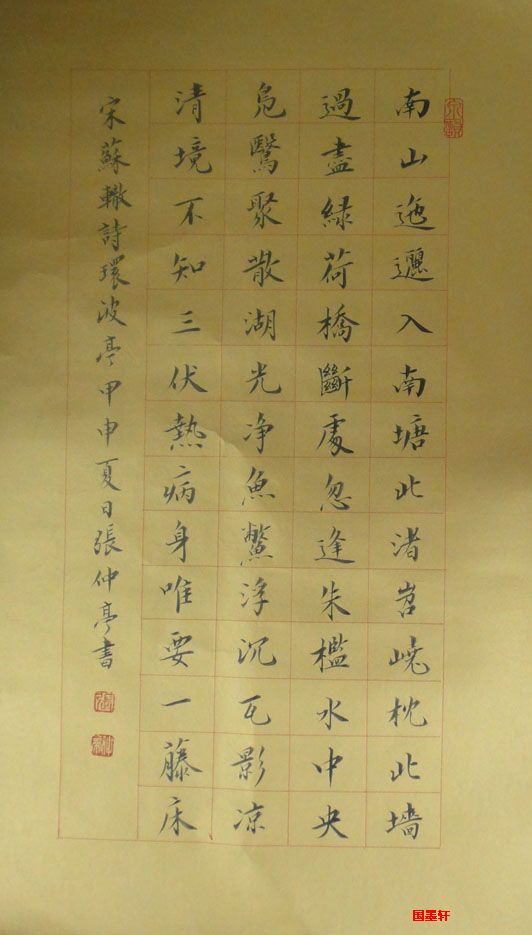 南山迤邐入南塘北渚岧嶢枕北墻
過盡緑荷橋斷處忽逢朱檻水中央
凫鷖聚散湖光净魚鱉浮沉瓦影凉
清境不知三伏熱病身唯要一藤床
宋蘇轍詩環波亭甲申夏日張仲亭書
国墨轩